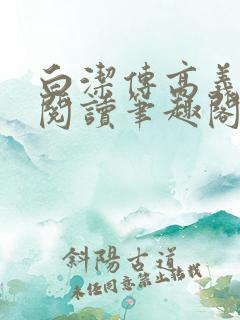 白潔傳高義
閱讀筆趣閣
斜陽古道
未經同意禁止轉載